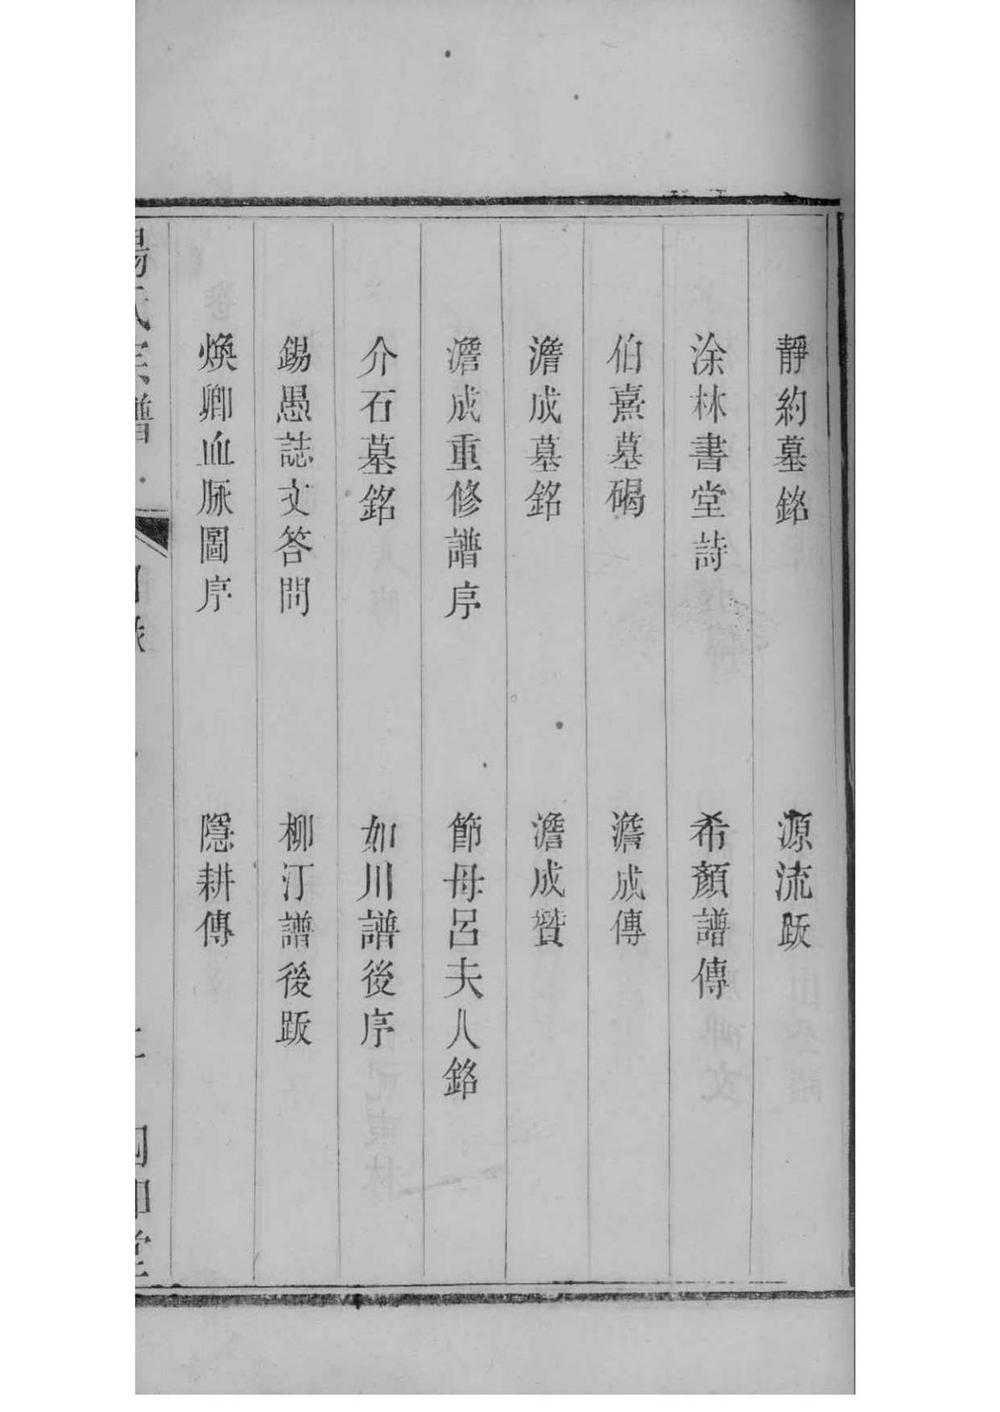 靜約墓銘 源流䟦
涂林書堂詩 希顏譜傳
伯熹墓碣 澹成傳
澹成墓銘 澹成贊
澹成重修譜序 節母呂夫人銘
介石墓銘 如川譜後序
錫愚誌文答問 柳汀譜後䟦
煥卿血脉圖序 隱耕傳
氏宗譜 目錄